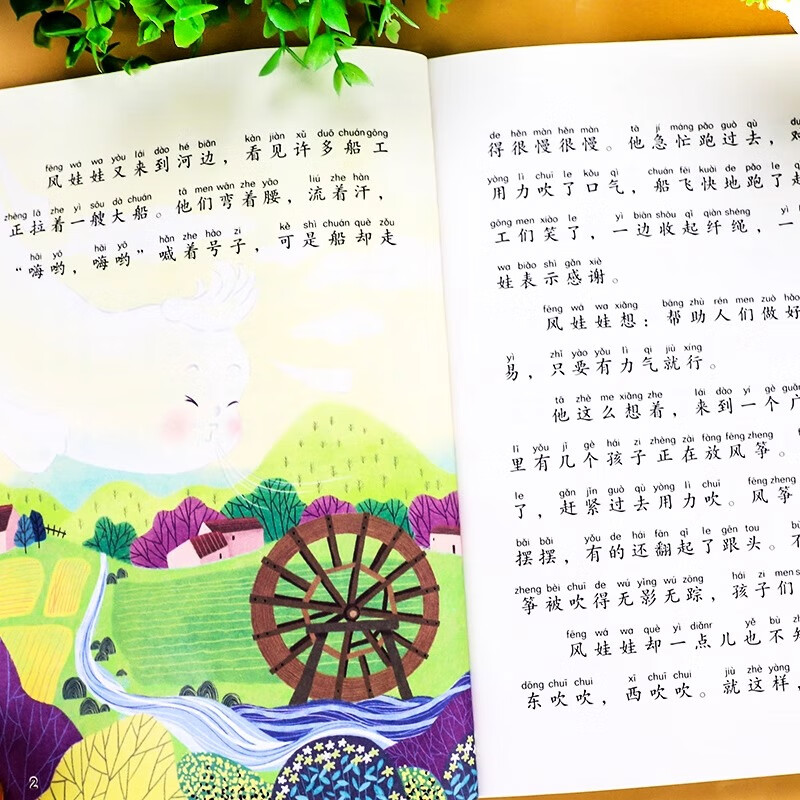 fēng wá wa yòu lái dào hé biān kàn jiàn xǔ duō chuán gōng
风娃娃又来到河边，看见许多船工
zhèng lā zhe yì sōu dà chuán tā men wān zhe yāo liú zhe hàn
正拉着一艘大船。他们弯着腰，流着汗，
hāi yō hāi yō hǎn zhe hào zi kě shì chuán què zǒu
“嗨哟，嗨哟”喊着号子，可是船却走
2
de hěn màn hěn màn tā jí máng pǎo guò qù
得很慢很慢。他急忙跑过去，对
yòng lì chuī le kǒu qì chuán fēi kuài de pǎo le
用力吹了口气，船飞快地跑了起
gōng men xiào le yì biān shōu qǐ qiàn shéng yì
工们笑了，一边收起纤绳，一
wa biǎo shì gǎn xiè
娃表示感谢。
fēng wá wa xiǎng bāng zhù rén men zuò hǎo
风娃娃想：帮助人们做好
yì zhǐ yào yǒu lì qi jiù xíng
易，只要有力气就行。
tā zhè me xiǎng zhe lái dào yí gè guǎng
他这么想着，来到一个广
lǐ yǒu jǐ gè hái zi zhèng zài fàng fēng zheng
里有几个孩子正在放风筝。
le gǎn jǐn guò qù yòng lì chuī fēng
了，赶紧过去用力吹。风筝
bǎi bǎi yǒu de hái fān qǐ le gēn tou bù
摆摆，有的还翻起了跟头。不
zheng bèi chuī de wú yǐng wú zōng hái zi men
筝被吹得无影无踪，孩子们
fēng wá wa què yì diǎnr yě bù zhī
风娃娃却一点儿也不知
dōng chuī chui xī chuī chui jiù zhè yàng
东吹吹，西吹吹。就这样，